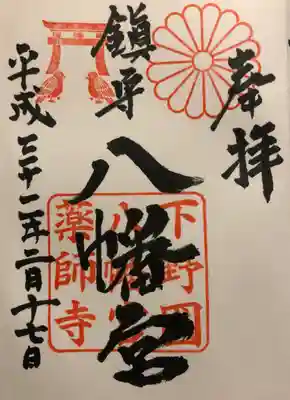 奉拝
鎮守
八幡宮
下野国
八幡宮
薬師寺
平成三十一年二月十七日